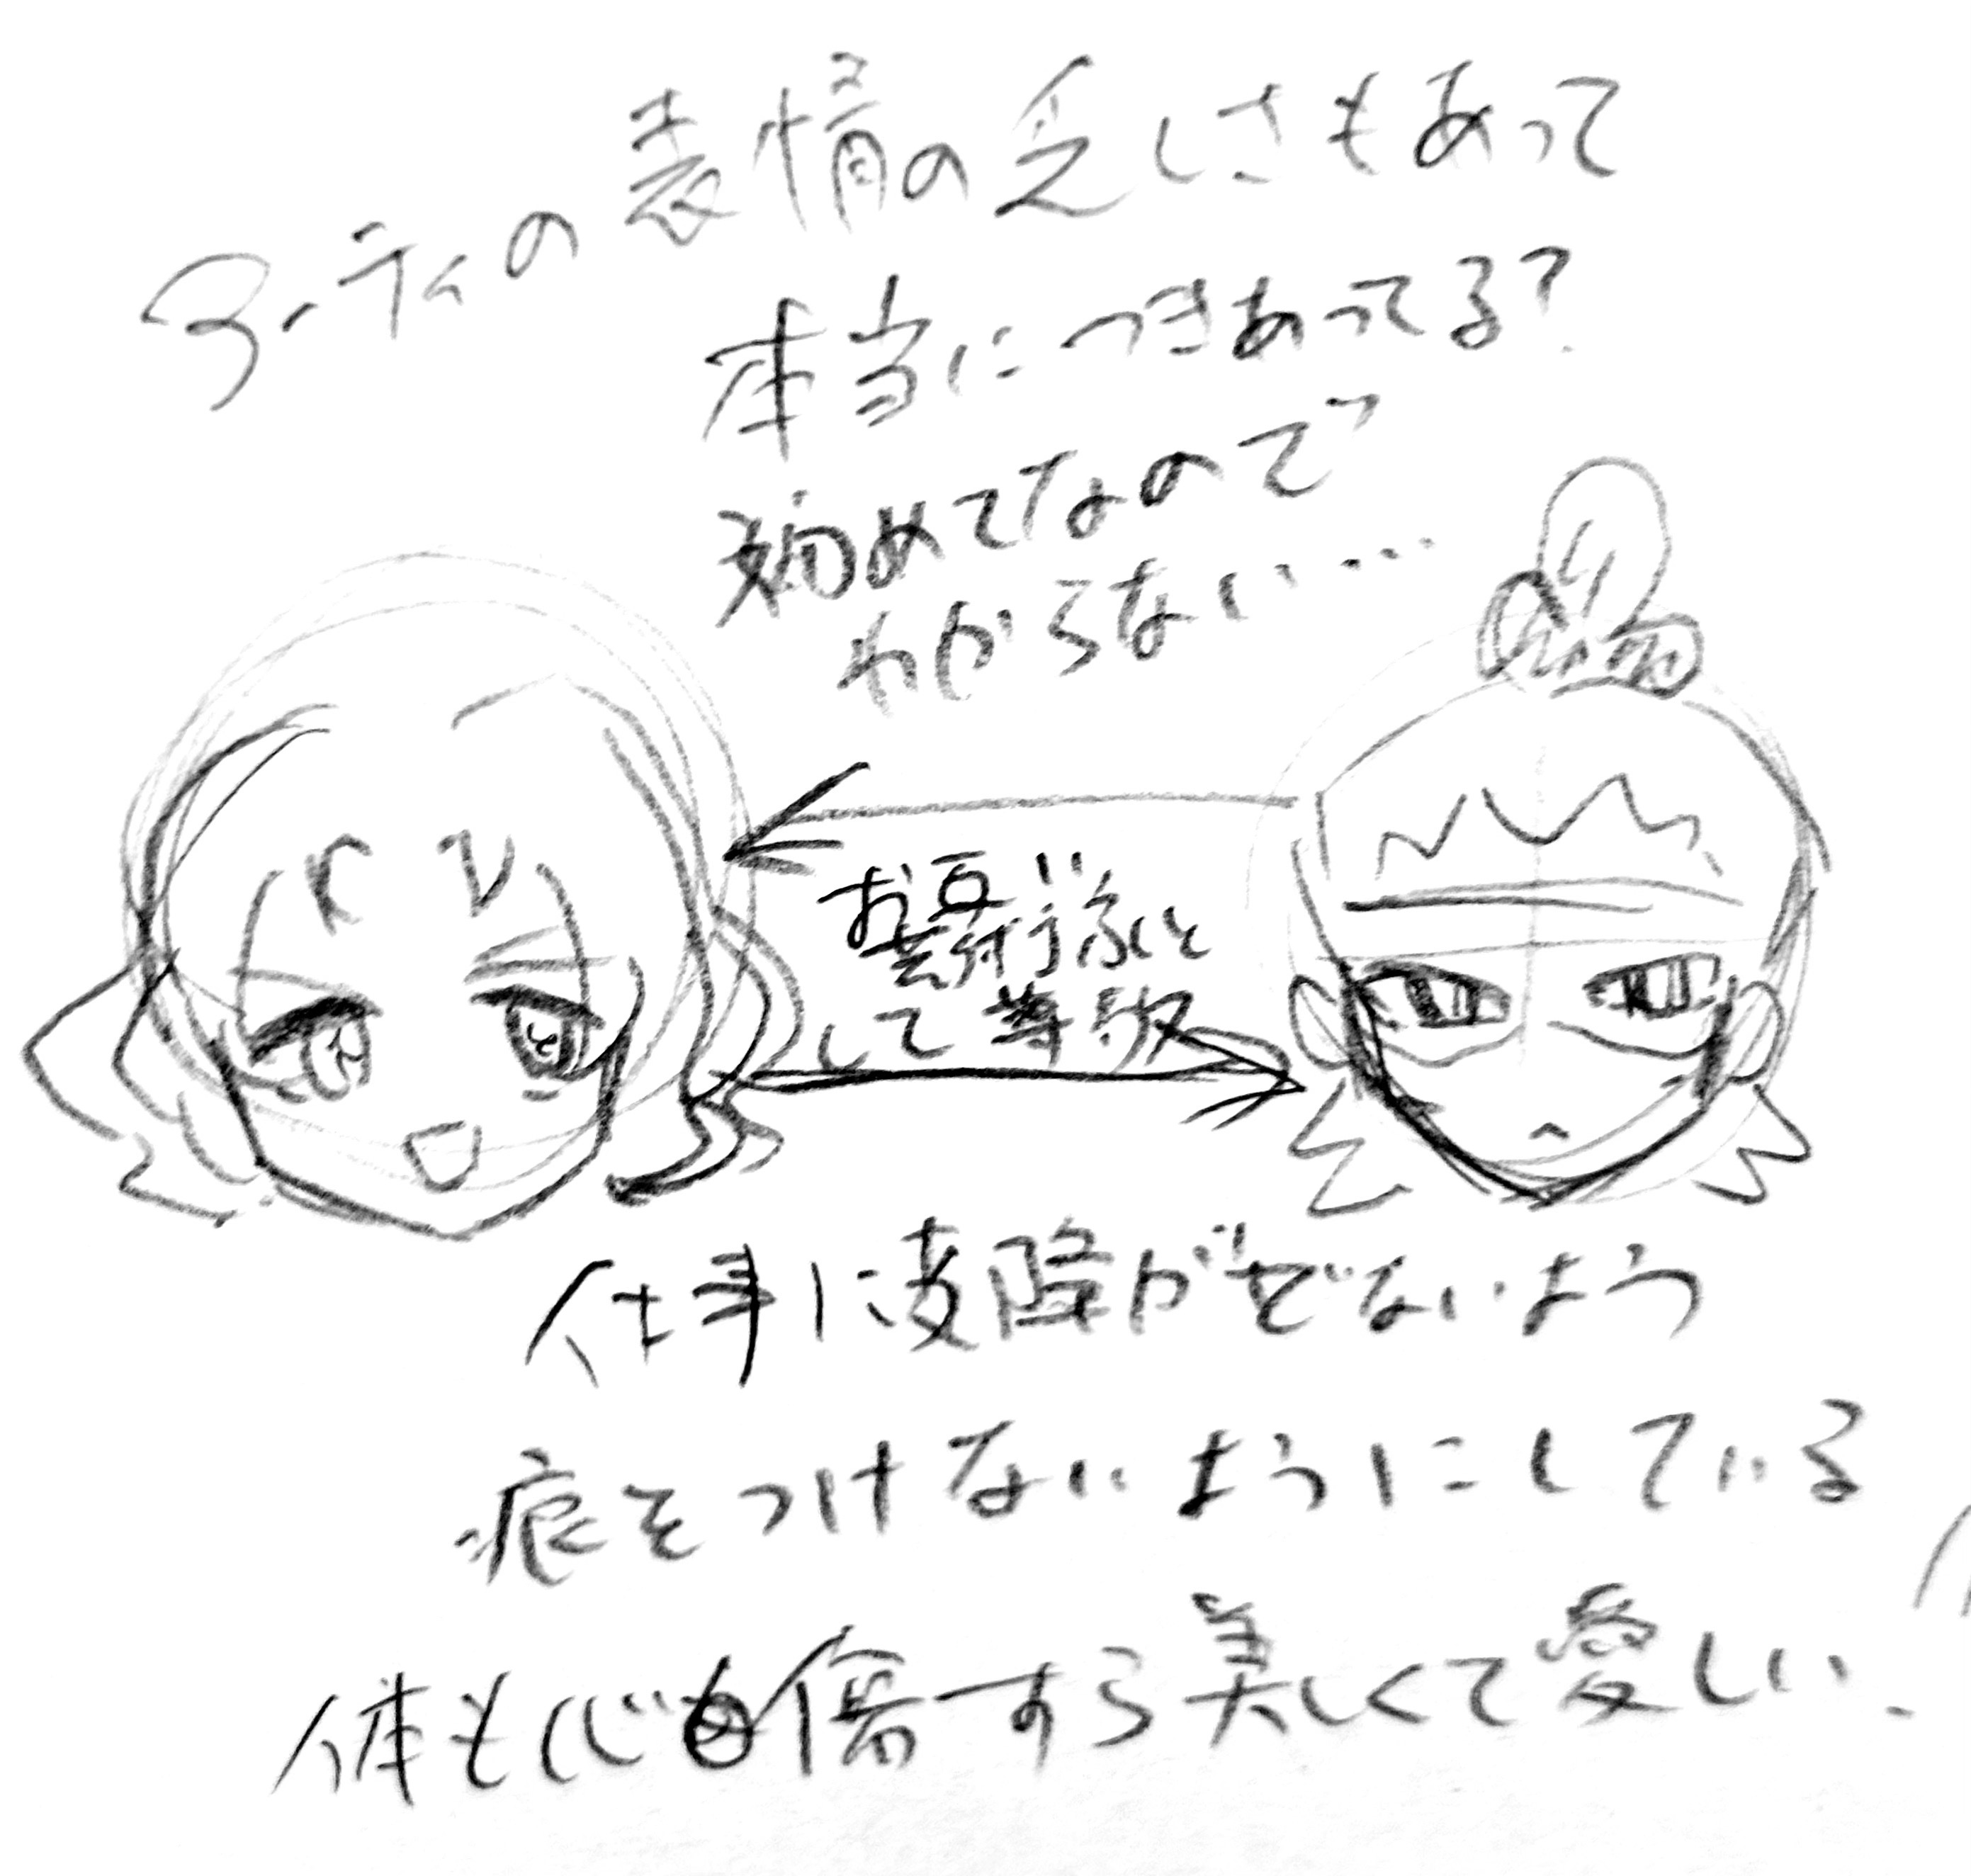 アーティの表情の乏しさもあって
本当につきあってる？
始めてなので
わからない…
お互い
芸術家と
して尊敬
仕事に支障がでないよう
痕をつけないようにしている
体も心も傷すら美しくて愛しい、